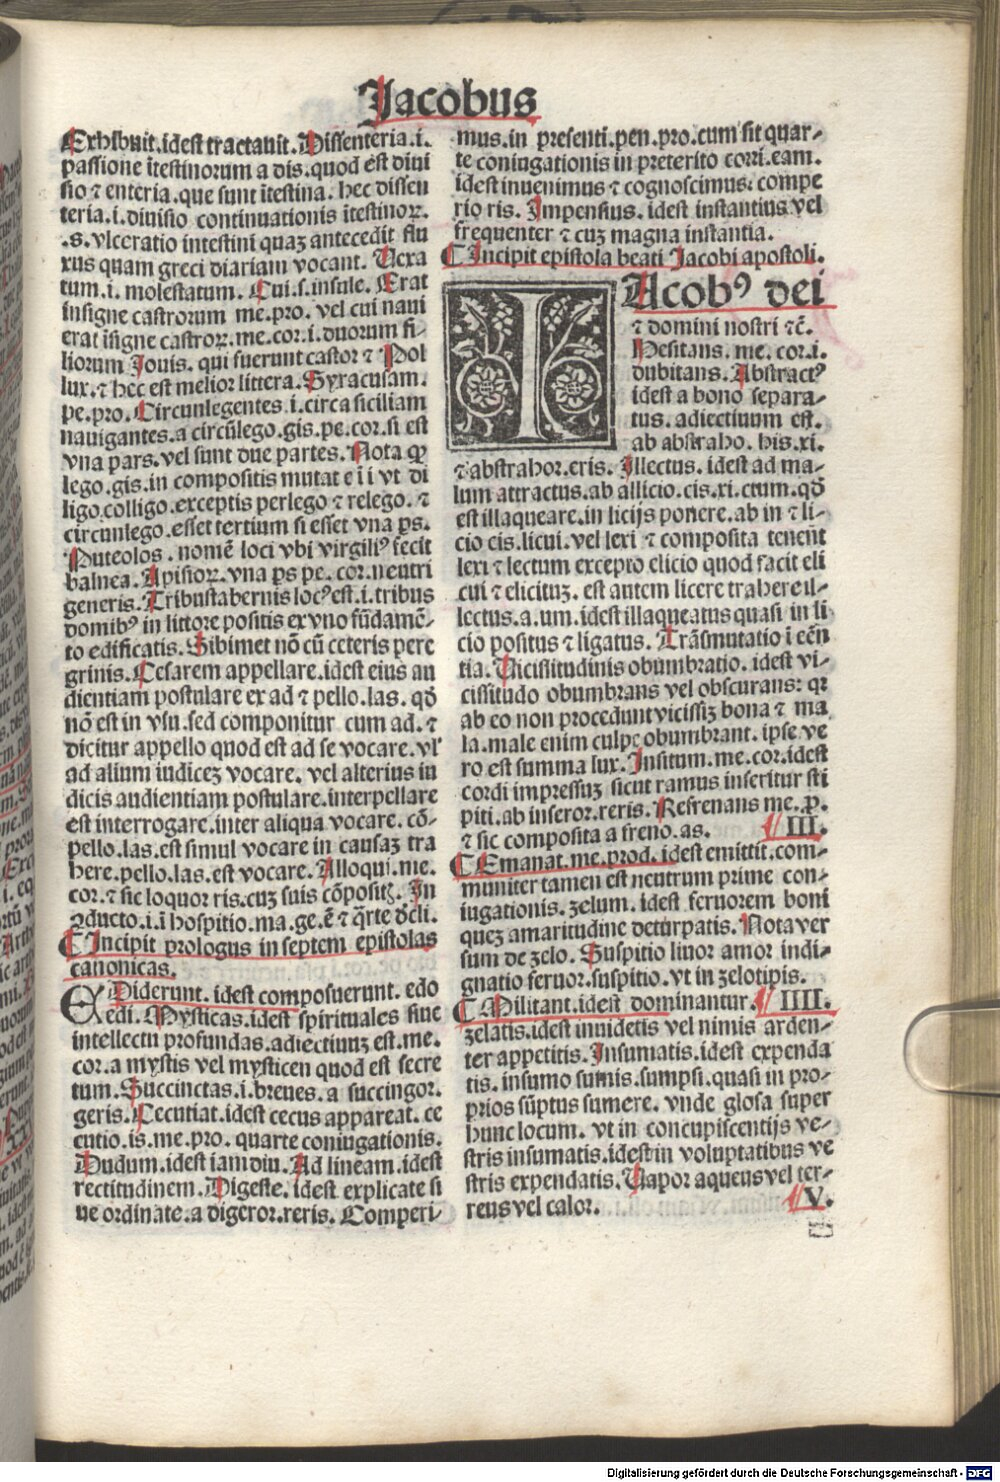 Jacobus
Exhibuit.idest tractauit.Dissenteria.i.
passione ītestinorum a dis.quod est diui
sio ⁊ enteria.que sunt ītestina. hec dissen
teria.i.diuisio continuationis ītestinoꝝ.
.s.vlceratio intestini quaꝫ antecedit flu
xus quam greci diariam vocant. Vexa
tum.i. molestatum. Cui.s.insule. Erat
insigne castrorum me.pro. vel cui naui
erat īsigne castroꝝ.me.cor.i.duorum fi-
liorum Jouis. qui fuerunt castor ⁊ Pol
lux.⁊ hec est melior littera. Syracusam.
pe.pro. Circunlegentes.i.circa siciliam
nauigantes.a circūlego.gis.pe.cor.si est
vna pars.vel sunt due partes. Nota ꝙ
lego.gis.in compositis mutat e ī i vt di
ligo.colligo.exceptis perlego ⁊ relego. ⁊
circūlego.esset tertium si esset vna ps.
Puteolos. nomē loci vbi virgiliꝰ fecit
balnea. Apisioꝝ.vna ps pe. cor.neutri
generis. Tribustabernis locꝰ est.i.tribus
domibꝰ in littore positis ex vno fūdamē-
to edificatis. Sibimet nō cū ceteris pere
grinis. Cesarem appellare.idest eius au
dientiam postulare ex ad ⁊ pello.las. qđ
nō est in vsu.sed componitur cum ad. ⁊
dicitur appello quod est ad se vocare. vl'
ad alium iudiceꝫ vocare. vel alterius iu
dicis audientiam postulare.interpellare
est interrogare.inter aliqua vocare. cō-
pello.las.est simul vocare in causaꝫ tra
here.pello.las.est vocare. Alloqui.me.
cor.⁊ sic loquor ris.cuꝫ suis cōpositꝭ. In
ꝯducto.i.ī hospitio.ma.ge.ē ⁊ q̄rte dcli.
¶ Incipit prologus in septem epistolas
canonicas.
EX Diderunt. idest composuerunt. edo
edi. Mysticas.idest spirituales siue
intellectu profundas.adiectiuuꝫ est.me.
cor.a mystis vel mysticen quod est secre
tum. Succinctas.i.breues. a succingor.
geris. Cecutiat.idest cecus appareat. ce
cutio.is.me.pro. quarte coniugationis.
Dudum.idest iamdiu. Ad lineam.idest
rectitudinem. Digeste. idest explicate si
ue ordinate.a digeror.reris. Comperi-
mus.in presenti.pen.pro.cum sit quar-
te coniugationis in preterito corri.eam.
idest inuenimus ⁊ cognoscimus: compe
rio ris. Impensius. idest instantius vel
frequenter ⁊ cuꝫ magna instantia.
¶ Incipit epistola beati Jacobi apostoli.
IAcobꝰ dei
⁊ domini nostri ⁊c̄.
Hesitans. me. cor.i.
dubitans. Abstractꝰ
idest a bono separa-
tus. adiectiuum est.
ab abstraho. his.xi.
⁊ abstrahor.eris. Illectus. idest ad ma-
lum attractus.ab allicio.cis.xi.ctum.qđ
est illaqueare.in licijs ponere.ab in ⁊ li-
cio cis.licui.vel lexi ⁊ composita tenent
lexi ⁊ lectum excepto elicio quod facit eli
cui ⁊ elicituꝫ. est autem licere trahere il-
lectus.a.um.idest illaqueatus quasi in li
cio positus ⁊ ligatus. Trāsmutatio ī eēn
tia. Vicissitudinis obumbratio. idest vi-
cissitudo obumbrans vel obscurans: qꝛ
ab eo non procedunt vicissiꝫ bona ⁊ ma
la.male enim culpe obumbrant. ipse ve
ro est summa lux. Insitum.me.cor.idest
cordi impressuꝫ sicut ramus inseritur sti
piti.ab inseror.reris. Refrenans me. p.
⁊ sic composita a freno.as. III.
¶ Emanat.me.prod.idest emittit.com-
muniter tamen est neutrum prime con-
iugationis. zelum. idest feruorem boni
queꝫ amaritudine deturpatis. Nota ver
sum de zelo. Suspitio liuor amor indi-
gnatio feruor.suspitio.vt in zelotipis.
¶ Militant.idest dominantur. IIII.
zelatis.idest inuidetis vel nimis arden-
ter appetitis. Insumatis.idest expenda
tis. insumo sumis.sumpsi.quasi in pro-
prios sūptus sumere. vnde glosa super
hunc locum. vt in concupiscentijs ve-
stris insumatis.idest in voluptatibus ve
stris expendatis. Vapor aqueus vel ter-
reus vel calor. V.
Digitalisierung gefördert durch die Deutsche Forschungsgemeinschaft - DFG